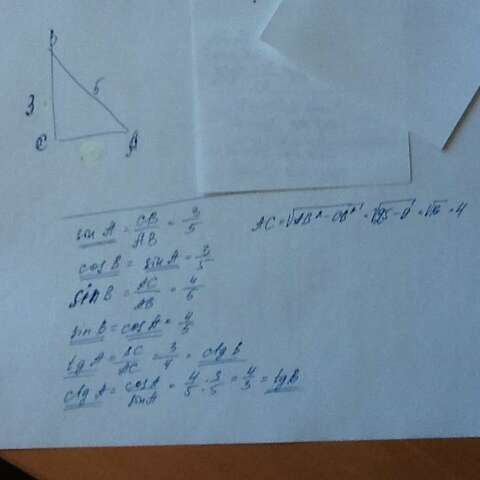 B
3
5
C A
sin A = CB/AB = 3/5
AC = √AB² - CB² = √25 - 9 = √16 = 4
cos B = sin A = 3/5
sin B = AC/AB = 4/5
sin B = cos A = 4/5
tg A = BC/AC = 3/4 = ctg B
ctg A = cos A/sin A = 4/5 : 3/5 = 4/3 = tg B